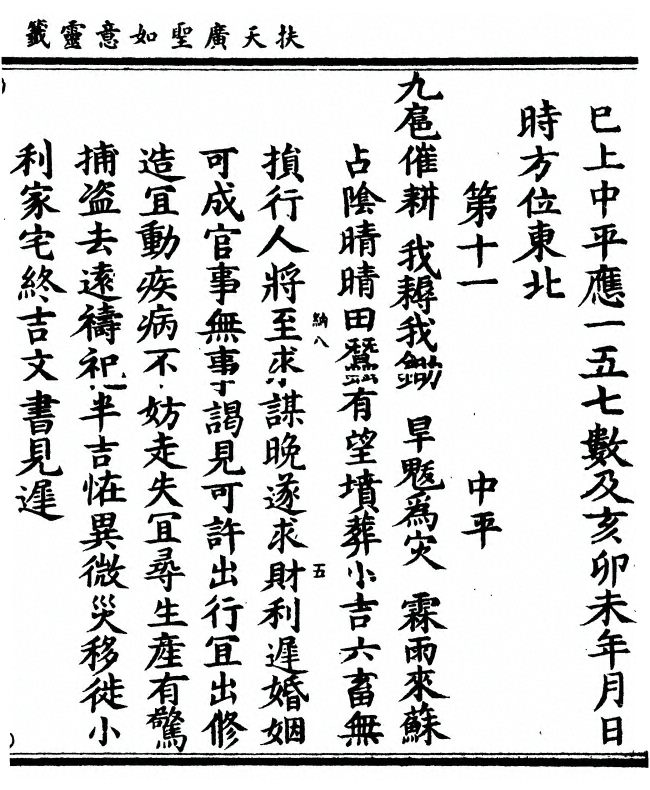 扶天廣聖如意靈籤
巳上中平應一五七數及亥卯未年月日
時方位東北
第十一 中平
九扈催耕 我耨我鋤 旱魃爲灾 霖雨來蘇
占陰晴晴田蠶有望墳葬小吉六畜無
損行人將至求謀晚遂求財利遲婚姻
納八
五
可成官事無事謁見可許出行冝出修
造冝動疾病不妨走失冝尋生產有驚
捕盗去遠禱祀半吉恠異微災移徙小
利家宅終吉文書見遲